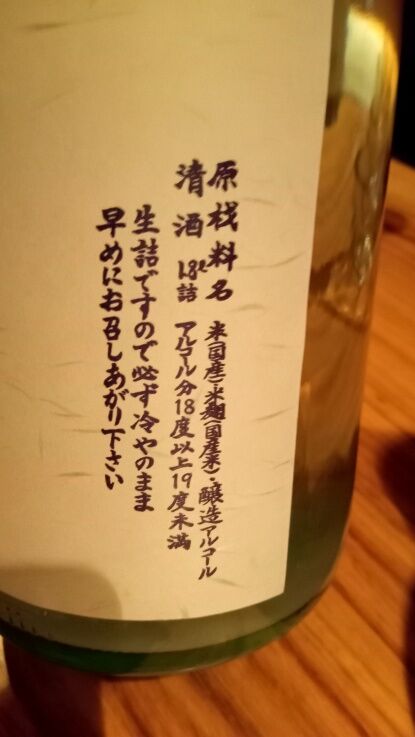 原材料名 米(国産)・米麹(国産米)・醸造アルコール
清酒 1.8ℓ詰 アルコール分18度以上19度未満
生詰ですので必ず冷やのまま
早めにお召しあがり下さい